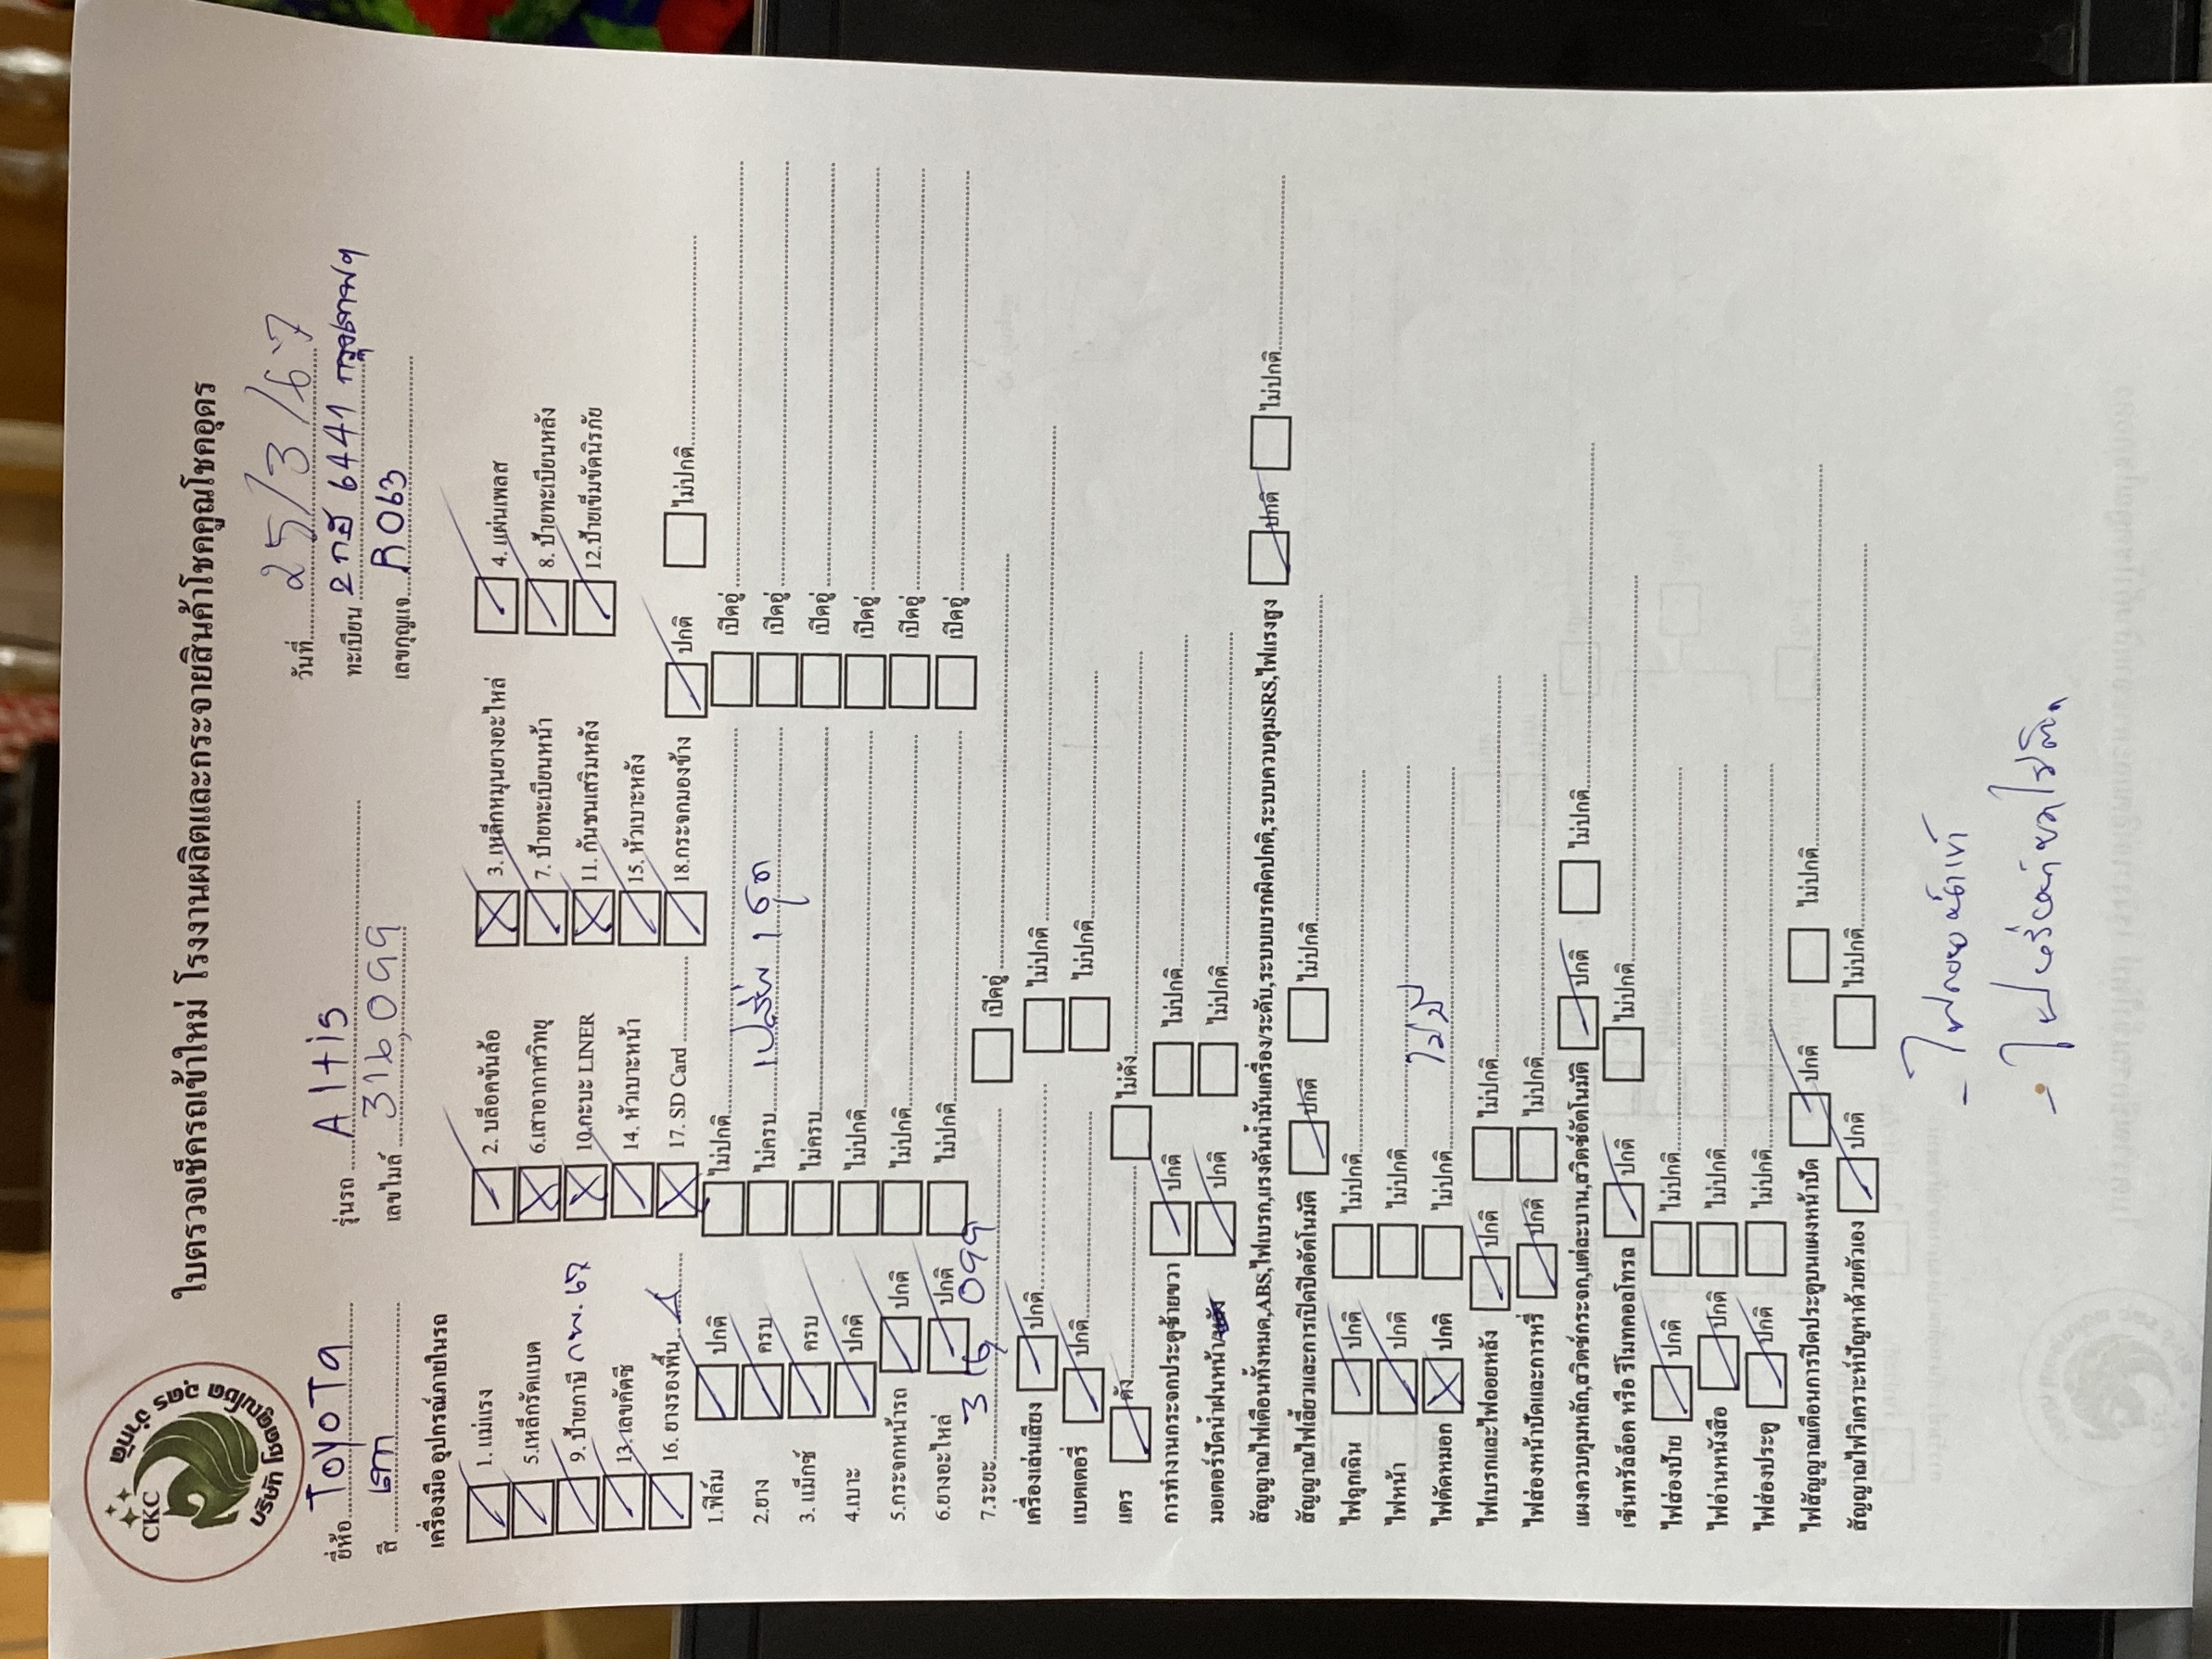 CKC
บริษัท โชคคูณโชค อุดร จำกัด
ใบตรวจเช็ครถเข้าใหม่ โรงงานผลิตและกระจายสินค้าโชคคูณโชคอุดร
วันที่ 25/3/67
ยี่ห้อ TOYOTA รุ่นรถ Altis ทะเบียน 2กฮ 6441 กรุงเทพฯ
สี เทา เลขไมล์ 316,099 เลขกุญแจ R063
เครื่องมือ อุปกรณ์ภายในรถ
1. แม่แรง 2. บล็อคขันล้อ 3. เหล็กหมุนยางอะไหล่ 4. แผ่นเพลส
5.เหล็กรัดแบต 6.เสาอากาศวิทยุ 7. ป้ายทะเบียนหน้า 8. ป้ายทะเบียนหลัง
9. ป้ายภาษี กพ. 67 10.กะบะ LINER 11. กันชนเสริมหลัง 12.ป้ายเข็มขัดนิรภัย
13. เลขคัดซี 14. หัวเบาะหน้า 15. หัวเบาะหลัง
16. ยางรองพื้น 17. SD Card 18.กระจกมองข้าง ปกติ ไม่ปกติ
1.ฟิล์ม ปกติ ไม่ปกติ เปิดอยู่
2.ยาง ครบ ไม่ครบ เปลี่ยน 1 ชุด เปิดอยู่
3. แม็กซ์ ครบ ไม่ครบ เปิดอยู่
4.เบาะ ปกติ ไม่ปกติ เปิดอยู่
5.กระจกหน้ารถ ปกติ ไม่ปกติ เปิดอยู่
6.ยางอะไหล่ ปกติ ไม่ปกติ เปิดอยู่
7.ระยะ 316,099 เปิดอยู่
เครื่องเล่นเสียง ปกติ ไม่ปกติ
แบตเตอรี่ ปกติ ไม่ปกติ
แตร ดัง ไม่ดัง
การทำงานกระจกประตูซ้ายขวา ปกติ ไม่ปกติ
มอเตอร์ปัดน้ำฝนหน้า ปกติ ไม่ปกติ
สัญญาณไฟเตือนทั้งหมด,ABS,ไฟเบรก,แรงดันน้ำมันเครื่อง/ระดับ,ระบบเบรกผิดปกติ,ระบบควบคุมSRS,ไฟแรงสูง ปกติ ไม่ปกติ
สัญญาณไฟเลี้ยวและการเปิดปิดอัตโนมัติ ปกติ ไม่ปกติ
ไฟฉุกเฉิน ปกติ ไม่ปกติ
ไฟหน้า ปกติ ไม่ปกติ
ไฟตัดหมอก ปกติ ไม่ปกติ ไม่มี
ไฟเบรกและไฟถอยหลัง ปกติ ไม่ปกติ
ไฟส่องหน้าปัดและการหรี่ ปกติ ไม่ปกติ
แผงควบคุมหลัก,สวิตช์กระจก,แต่ละบาน,สวิตช์อัตโนมัติ ปกติ ไม่ปกติ
เซ็นทรัลล็อค หรือ รีโมทคอลโทรล ปกติ ไม่ปกติ
ไฟส่องป้าย ปกติ ไม่ปกติ
ไฟอ่านหนังสือ ปกติ ไม่ปกติ
ไฟส่องประตู ปกติ ไม่ปกติ
ไฟสัญญาณเตือนการปิดประตูบนแผงหน้าปัด ปกติ ไม่ปกติ
สัญญาณไฟวิเคราะห์ปัญหาด้วยตัวเอง ปกติ ไม่ปกติ